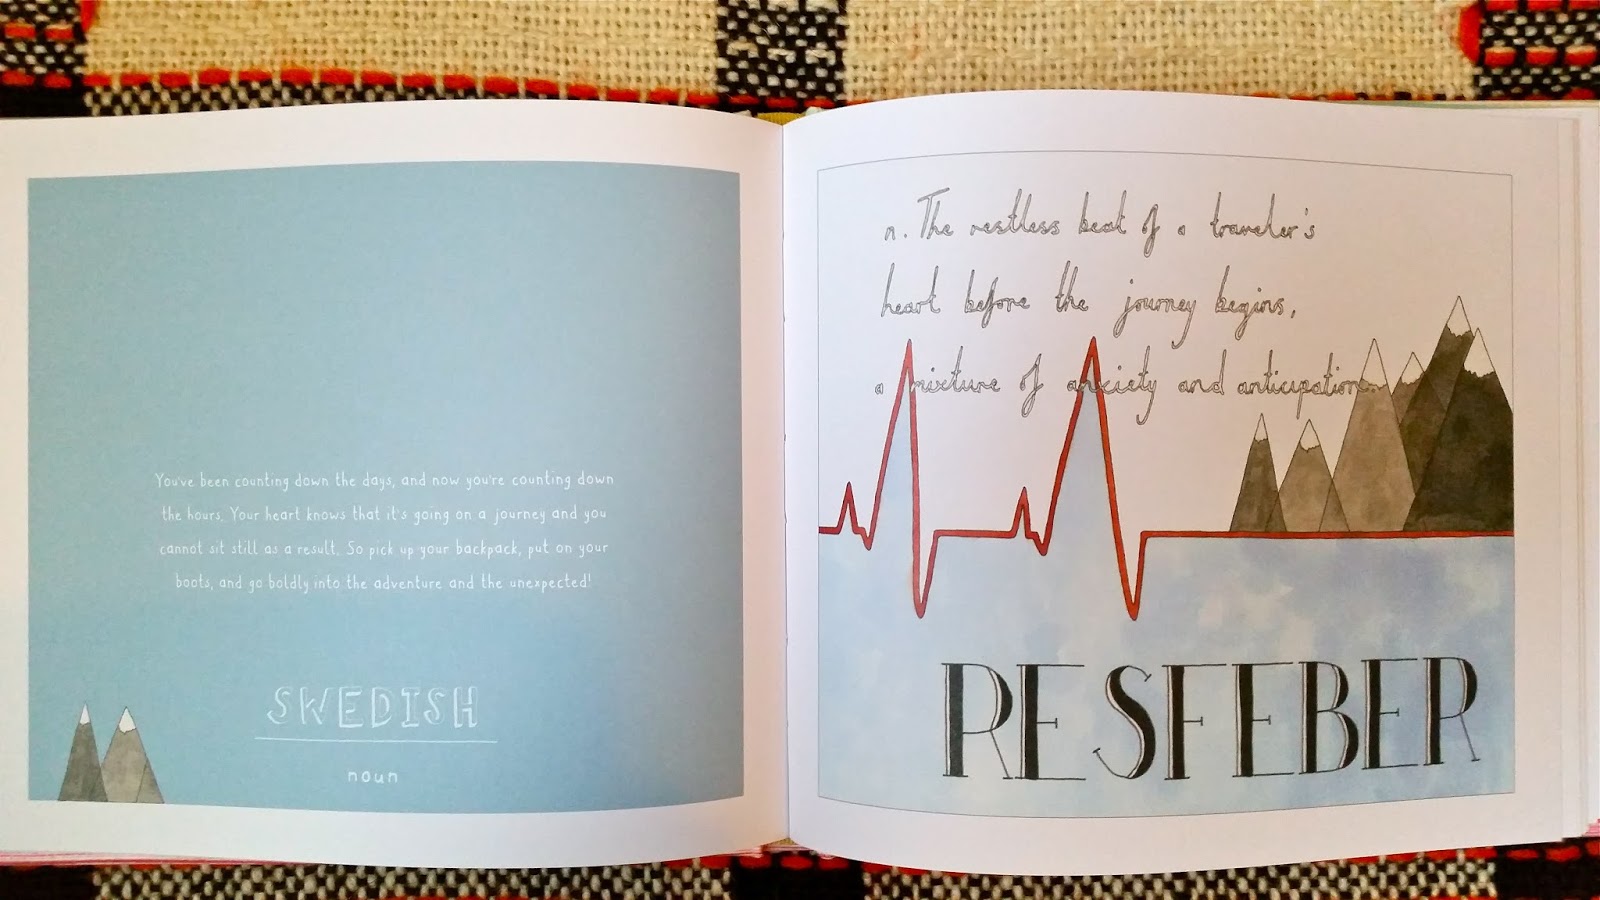 You've been counting down the days, and now you're counting down
the hours. Your heart knows that it's going on a journey and you
cannot sit still as a result. So pick up your backpack, put on your
boots, and go boldly into the adventure and the unexpected!
SWEDISH
noun
n. The restless beat of a traveler's
heart before the journey begins,
a mixture of anxiety and anticipation.
RESFEBER